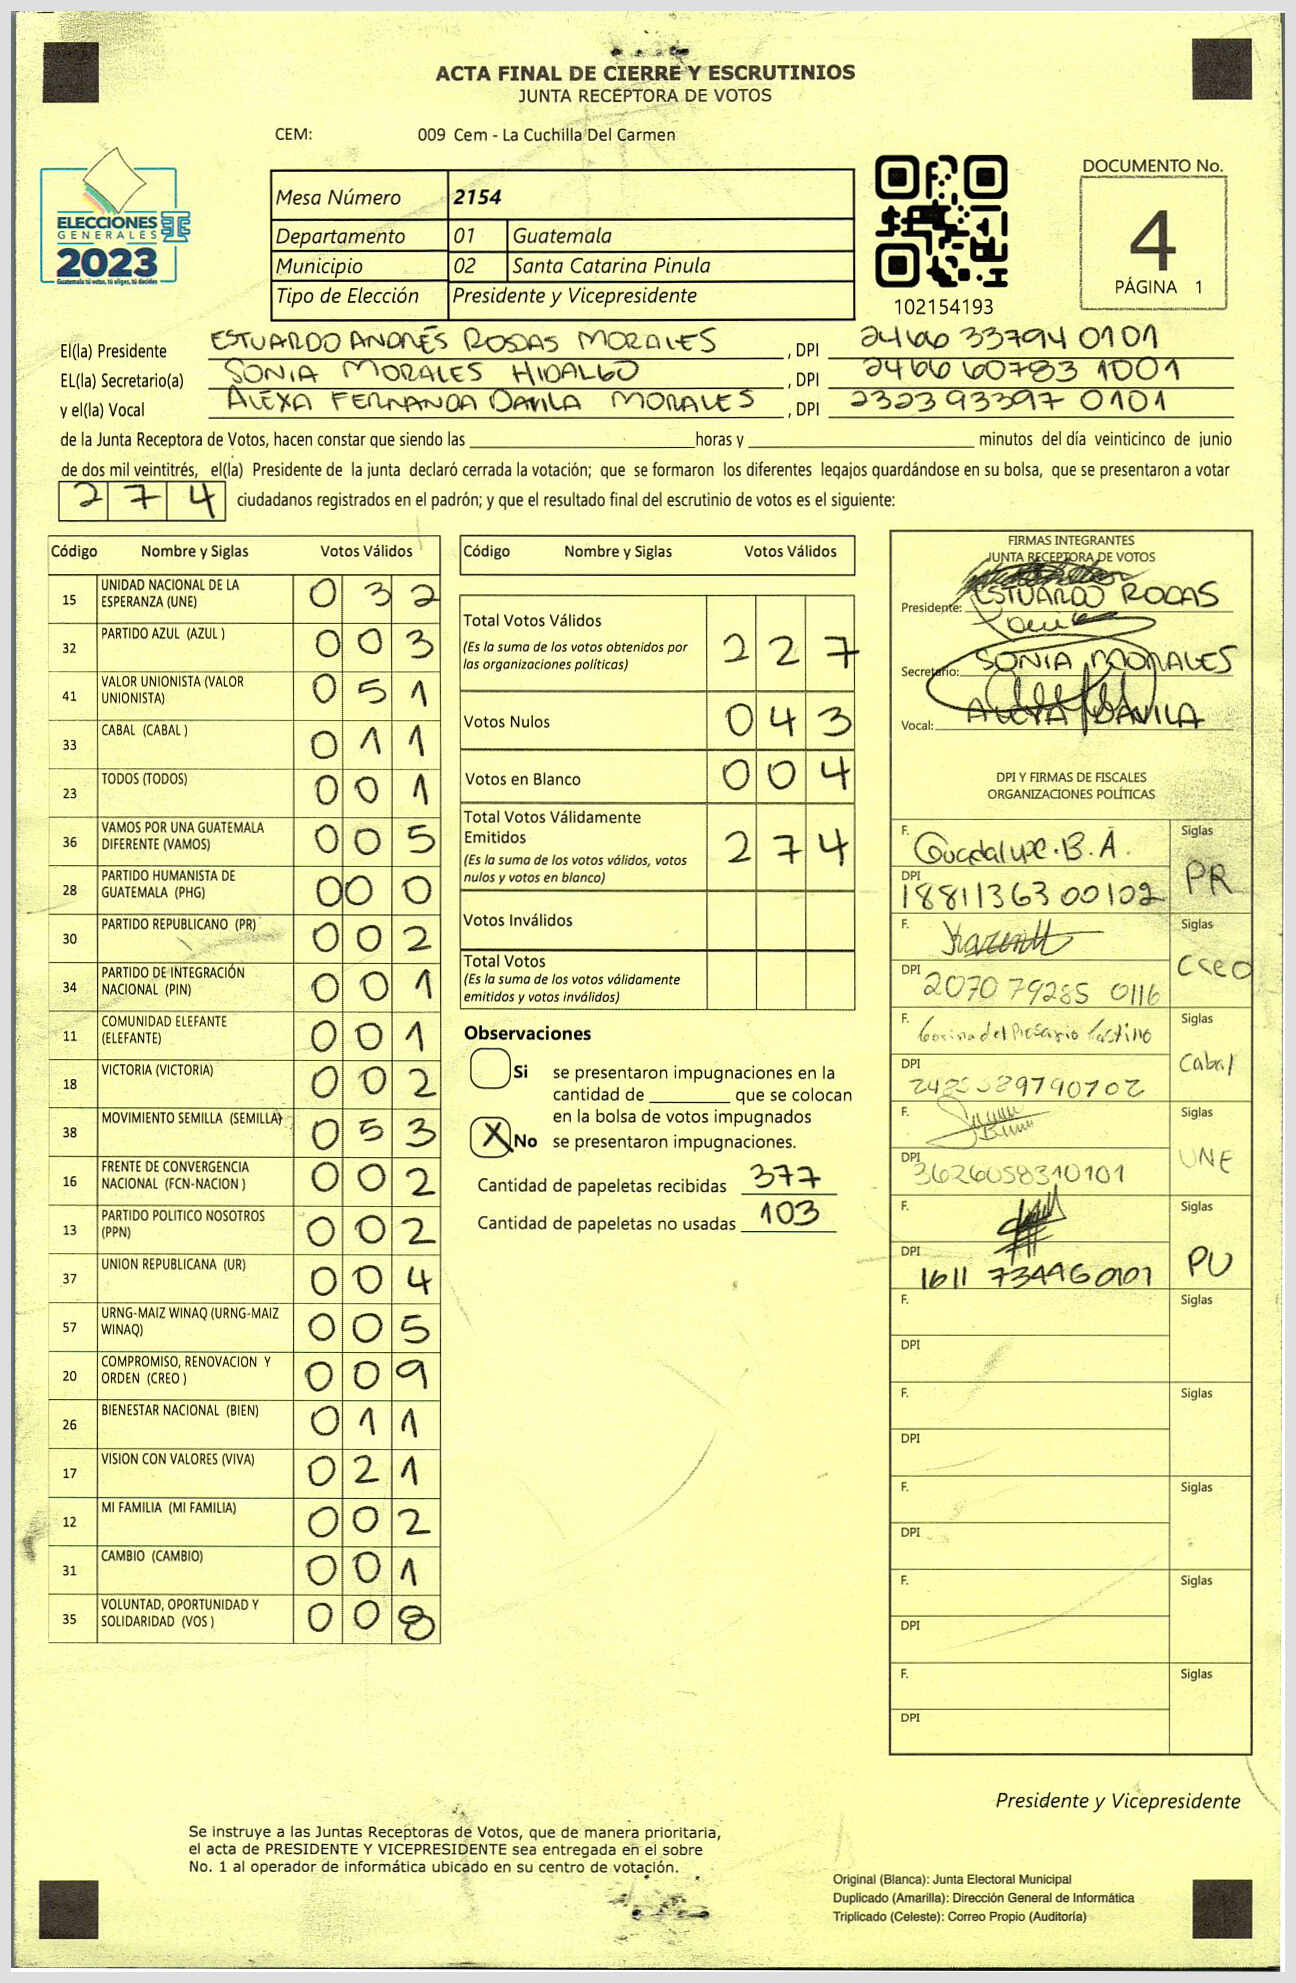 ACTA FINAL DE CIERRE Y ESCRUTINIOS
JUNTA RECEPTORA DE VOTOS
CEM: 009 Cem - La Cuchilla Del Carmen
ELECCIONES
GENERALES
2023
Guatemala tú votas, tú eliges, tú decides
Mesa Número 2154
Departamento 01 Guatemala
Municipio 02 Santa Catarina Pinula
Tipo de Elección Presidente y Vicepresidente
102154193
DOCUMENTO No.
4
PÁGINA 1
El(la) Presidente ESTUARDO ANDRÉS RODAS MORALES , DPI 2466 33794 0101
EL(la) Secretario(a) SONIA MORALES HIDALGO , DPI 2466 60783 1001
y el(la) Vocal ALEXA FERNANDA DAVILA MORALES , DPI 2323 93397 0101
de la Junta Receptora de Votos, hacen constar que siendo las horas y minutos del día veinticinco de junio
de dos mil veintitrés, el(la) Presidente de la junta declaró cerrada la votación; que se formaron los diferentes legajos guardándose en su bolsa, que se presentaron a votar
274 ciudadanos registrados en el padrón; y que el resultado final del escrutinio de votos es el siguiente:
Código Nombre y Siglas Votos Válidos
15 UNIDAD NACIONAL DE LA ESPERANZA (UNE) 032
32 PARTIDO AZUL (AZUL ) 003
41 VALOR UNIONISTA (VALOR UNIONISTA) 051
33 CABAL (CABAL ) 011
23 TODOS (TODOS) 001
36 VAMOS POR UNA GUATEMALA DIFERENTE (VAMOS) 005
28 PARTIDO HUMANISTA DE GUATEMALA (PHG) 000
30 PARTIDO REPUBLICANO (PR) 002
34 PARTIDO DE INTEGRACIÓN NACIONAL (PIN) 001
11 COMUNIDAD ELEFANTE (ELEFANTE) 001
18 VICTORIA (VICTORIA) 002
38 MOVIMIENTO SEMILLA (SEMILLA) 053
16 FRENTE DE CONVERGENCIA NACIONAL (FCN-NACION ) 002
13 PARTIDO POLITICO NOSOTROS (PPN) 002
37 UNION REPUBLICANA (UR) 004
57 URNG-MAIZ WINAQ (URNG-MAIZ WINAQ) 005
20 COMPROMISO, RENOVACION Y ORDEN (CREO ) 009
26 BIENESTAR NACIONAL (BIEN) 011
17 VISION CON VALORES (VIVA) 021
12 MI FAMILIA (MI FAMILIA) 002
31 CAMBIO (CAMBIO) 001
35 VOLUNTAD, OPORTUNIDAD Y SOLIDARIDAD (VOS ) 008
Código Nombre y Siglas Votos Válidos
Total Votos Válidos 227
(Es la suma de los votos obtenidos por
las organizaciones políticas)
Votos Nulos 043
Votos en Blanco 004
Total Votos Válidamente
Emitidos 274
(Es la suma de los votos válidos, votos
nulos y votos en blanco)
Votos Inválidos
Total Votos
(Es la suma de los votos válidamente
emitidos y votos inválidos)
Observaciones
Si se presentaron impugnaciones en la
cantidad de que se colocan
en la bolsa de votos impugnados
X No se presentaron impugnaciones.
Cantidad de papeletas recibidas 377
Cantidad de papeletas no usadas 103
FIRMAS INTEGRANTES
JUNTA RECEPTORA DE VOTOS
Presidente: ESTUARDO RODAS
Secretario: SONIA MORALES
Vocal: ALEXA DAVILA
DPI Y FIRMAS DE FISCALES
ORGANIZACIONES POLÍTICAS
F. Guadalupe.B.A. Siglas
DPI 1881136300102 PR
F. Siglas
DPI 2070 79285 0116 Creo
F. del Rosario Castillo Siglas
DPI Cabal
F. Siglas
DPI 3626058310101 UNE
F. Siglas
DPI 1611 73449 60101 PU
F. Siglas
DPI
F. Siglas
DPI
F. Siglas
DPI
F. Siglas
DPI
F. Siglas
DPI
Presidente y Vicepresidente
Se instruye a las Juntas Receptoras de Votos, que de manera prioritaria,
el acta de PRESIDENTE Y VICEPRESIDENTE sea entregada en el sobre
No. 1 al operador de informática ubicado en su centro de votación.
Original (Blanca): Junta Electoral Municipal
Duplicado (Amarilla): Dirección General de Informática
Triplicado (Celeste): Correo Propio (Auditoría)